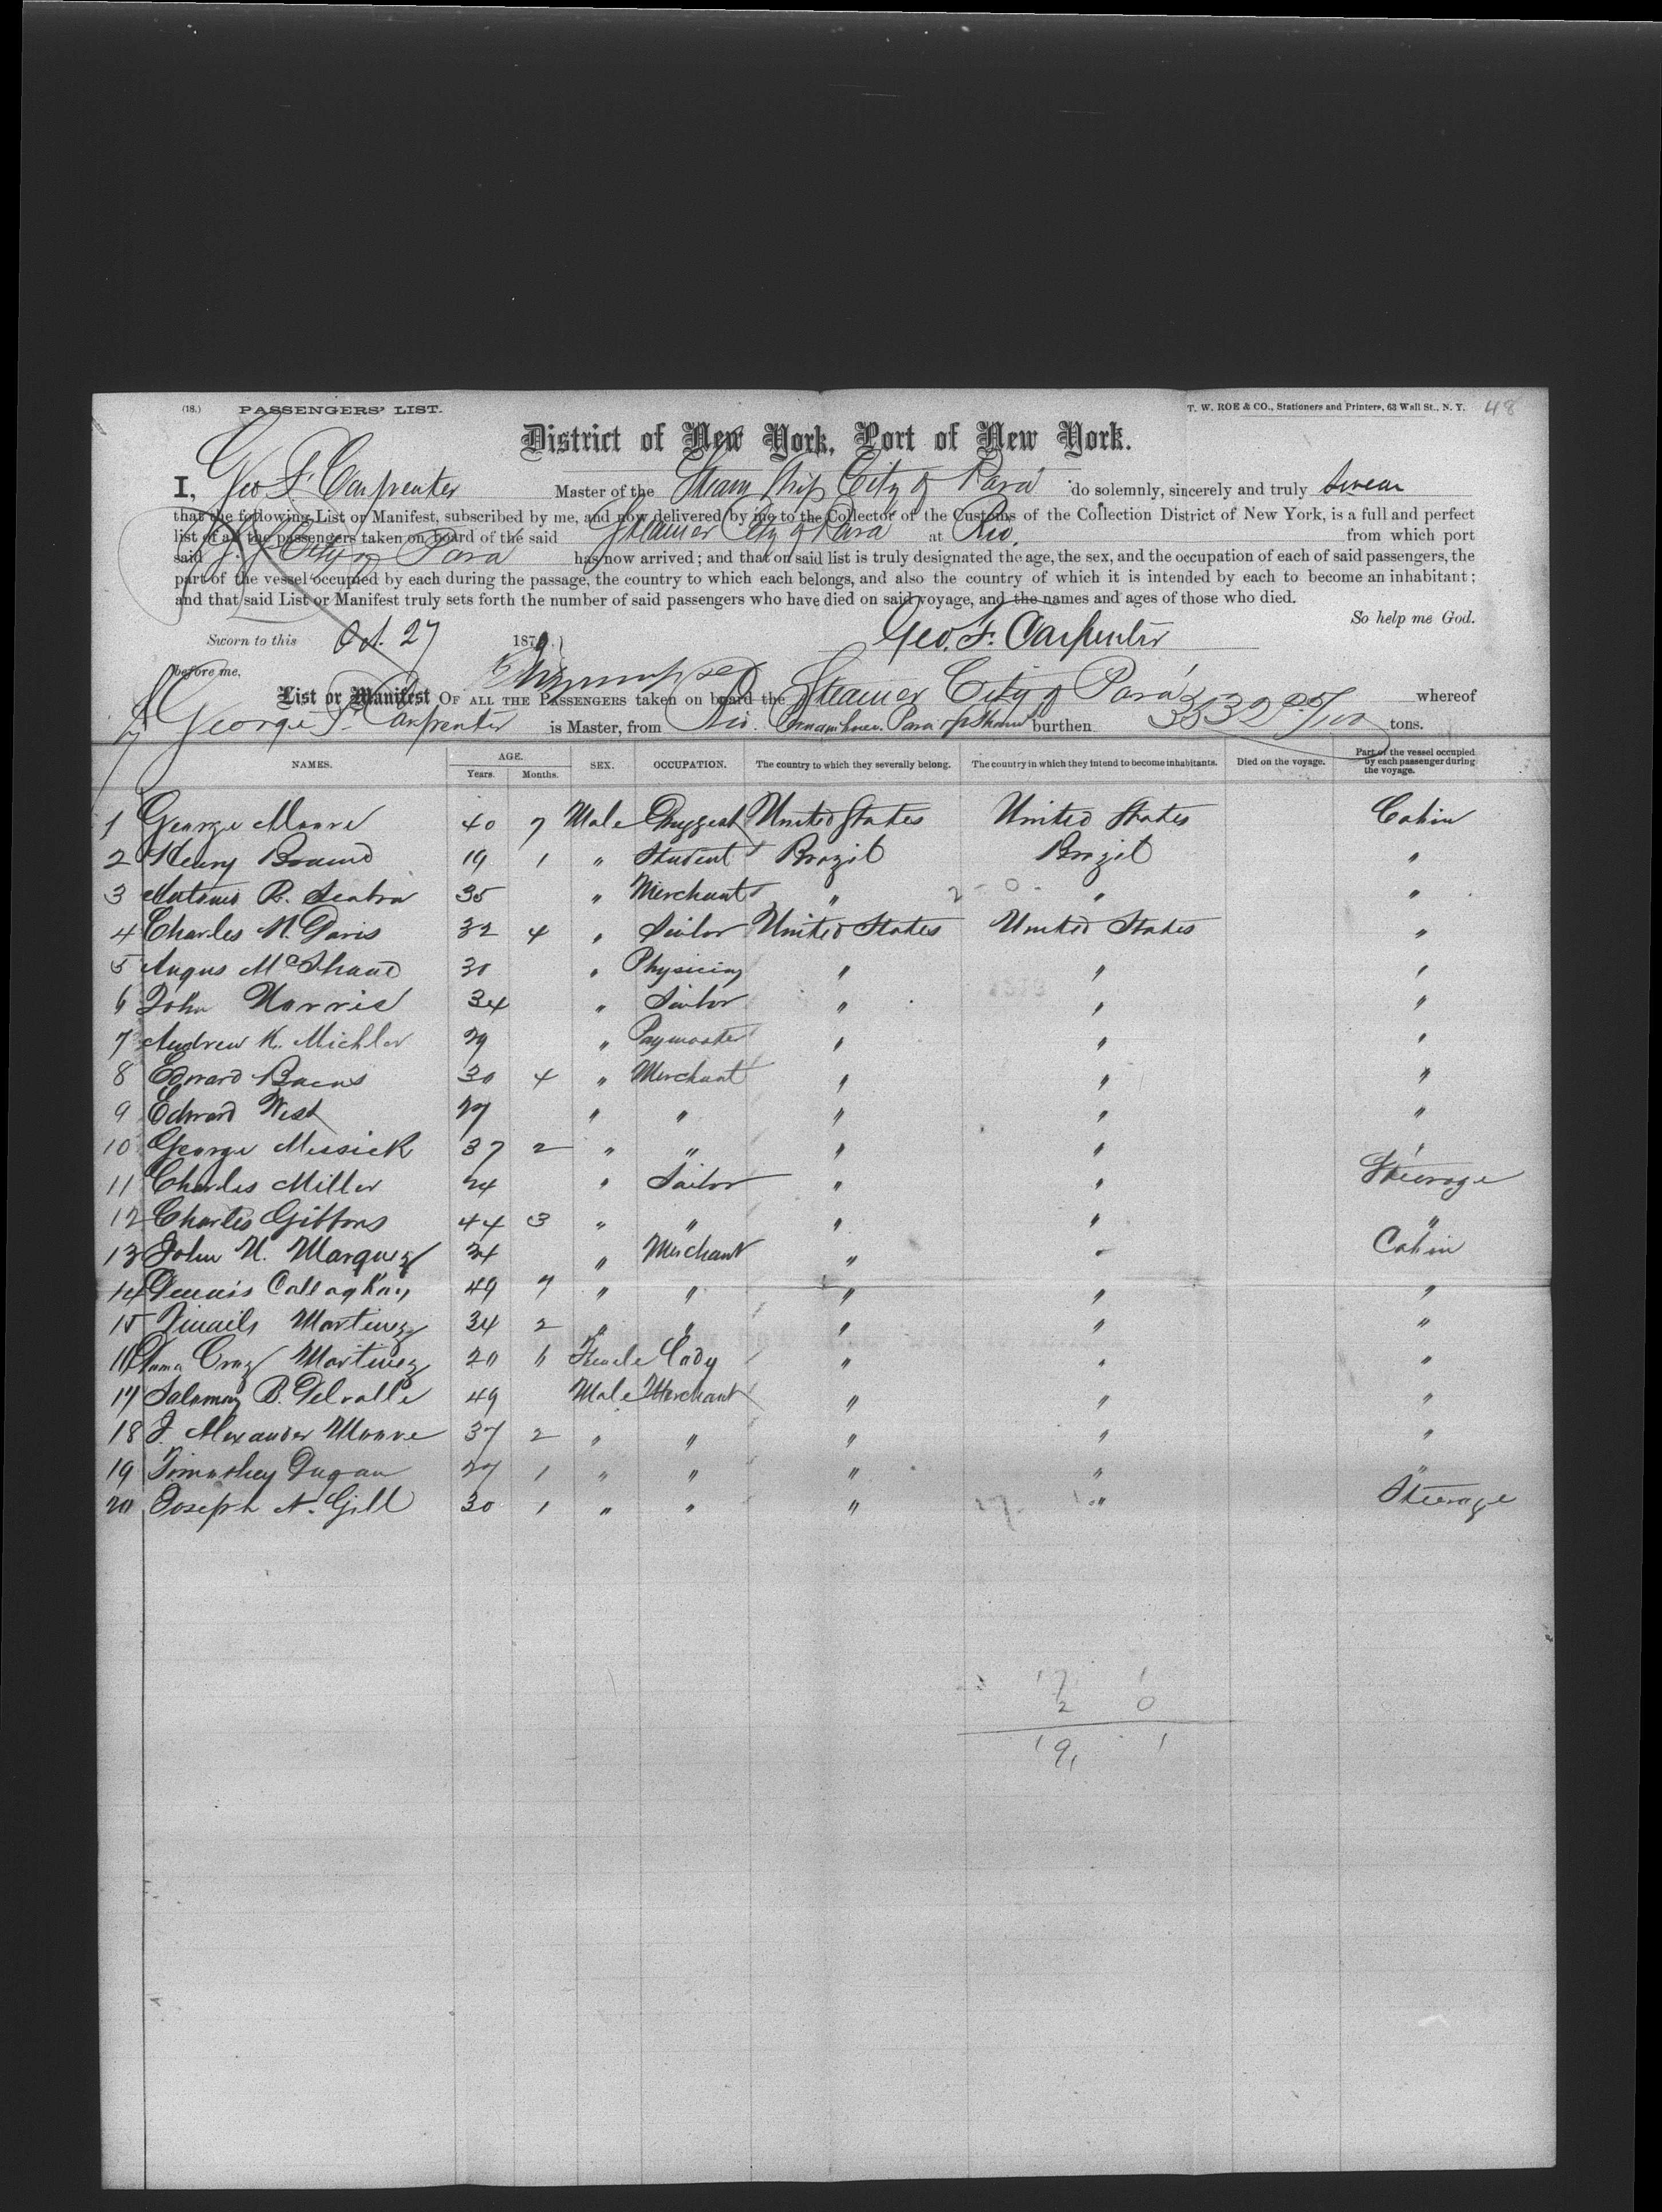 (18.) PASSENGERS' LIST. T. W. ROE & CO., Stationers and Printers, 63 Wall St., N. Y. 48
District of New York, Port of New York.
I, Geo. F. Carpenter Master of the Steam Ship City of Para do solemnly, sincerely and truly swear
that the following List or Manifest, subscribed by me, and now delivered by me to the Collector of the Customs of the Collection District of New York, is a full and perfect
list of all the passengers taken on board of the said Steamer City of Para at Rio. from which port
said City of Para has now arrived; and that on said list is truly designated the age, the sex, and the occupation of each of said passengers, the
part of the vessel occupied by each during the passage, the country to which each belongs, and also the country of which it is intended by each to become an inhabitant;
and that said List or Manifest truly sets forth the number of said passengers who have died on said voyage, and the names and ages of those who died.
So help me God.
Sworn to this Oct. 27 1879. Geo. F. Carpenter
before me,
List or Manifest OF ALL THE PASSENGERS taken on board the Steamer City of Para whereof
George F. Carpenter is Master, from Rio. Pernambuco. Para burthen 3532 25/100 tons.
NAMES. AGE. Years. Months. SEX. OCCUPATION. The country to which they severally belong. The country in which they intend to become inhabitants. Died on the voyage. Part of the vessel occupied by each passenger during the voyage.
1 George Moore 40 7 Male Druggist United States United States Cabin
2 Henry 19 1 " Student Brazil Brazil "
3 Antonio R. Seabra 35 " Merchant " 2 - 0 - " "
4 Charles H. Davis 32 4 " Sailor United States United States "
5 Angus McShane 30 " Physician " " "
6 John Norris 34 " Sailor " " "
7 Andrew K. Michler 29 " Paymaster " " "
8 Edward 30 4 " Merchant " " "
9 Edward West 27 " " " " "
10 George Messick 37 2 " " " " "
11 Charles Miller 24 " Sailor " " Steerage
12 Charles Gibbons 44 3 " " " " "
13 John N. Marquez 34 " Merchant " " Cabin
14 Dennis Callaghan 49 7 " " " " "
15 Martinez 34 2 " " " " "
16 Cruz Martinez 20 6 Female Lady " " "
17 Salomon B. Delvalle 49 Male Merchant " " "
18 J. Alexander Moore 37 2 " " " " "
19 Timothey Dugan 27 1 " " " " "
20 Joseph N. Gill 30 1 " " " 17. 1 " Steerage
17 1
2 0
19 1